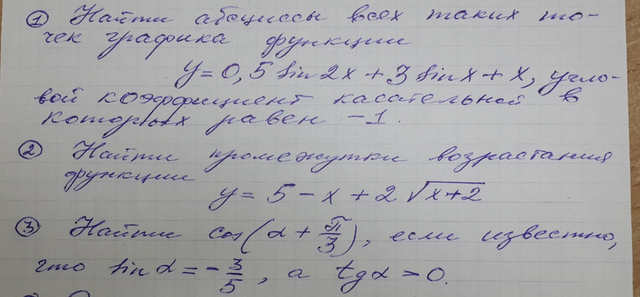 ① Найти абсциссы всех таких то-
чек графика функции
y = 0,5 sin 2x + 3 sin x + x, угло-
вой коэффициент касательной в
которых равен -1.
② Найти промежутки возрастания
функции
y = 5 - x + 2 √(x+2)
③ Найти cos(α + π/3), если известно,
что sin α = - 3/5, а tg α > 0.